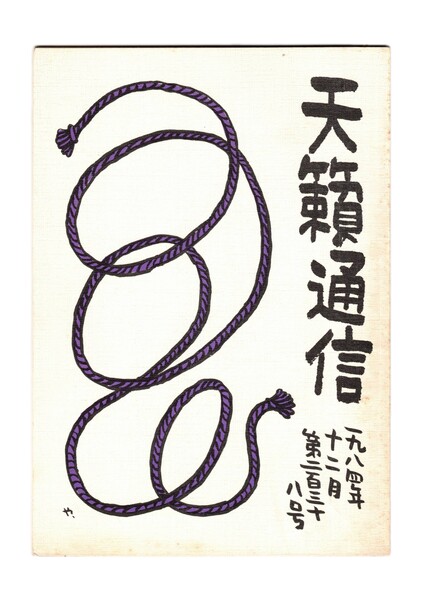 天籟通信
一九八四年
十二月
第二百三十
八号
や.